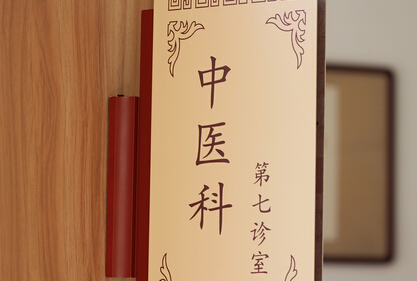 中医科
第七诊室